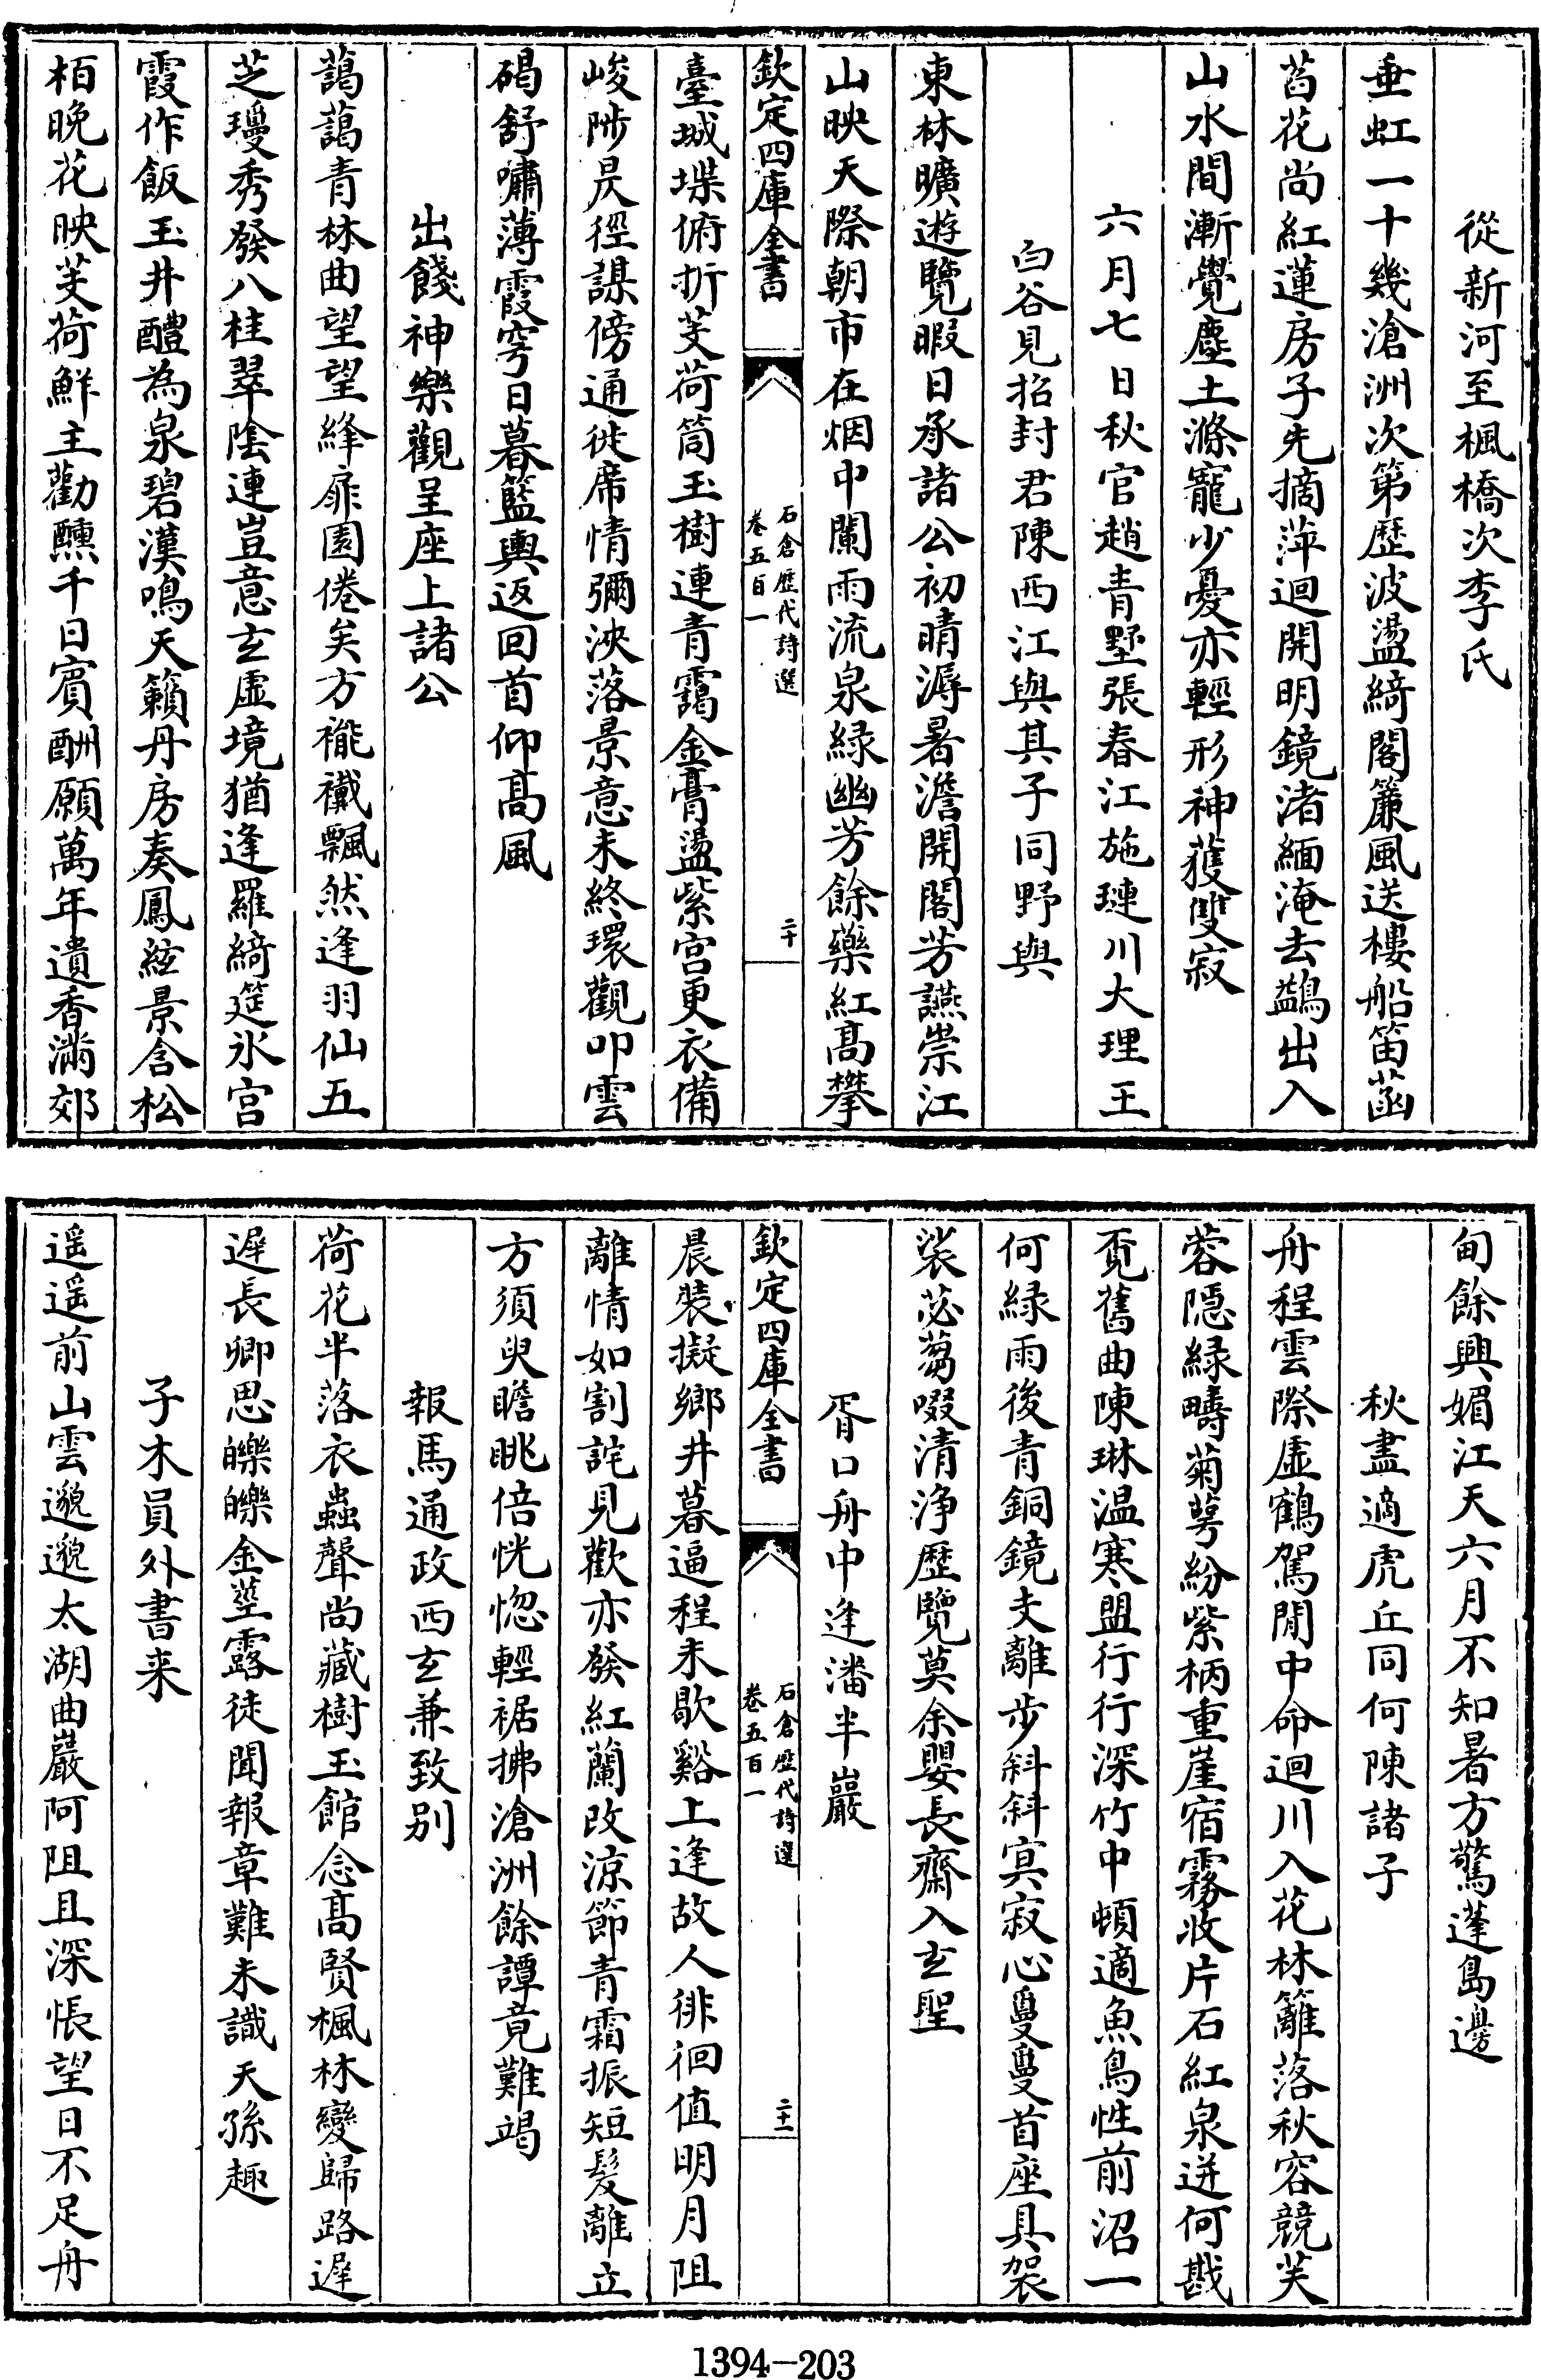 從新河至楓橋次李氏
垂虹一十幾滄洲次第歷波盪綺閣簾風送樓船笛菡
萏花尚紅蓮房子先摘萍迴開明鏡渚緬淹去鷁出入
山水間漸覺塵土滌寵少憂亦輕形神獲雙寂
六月七日秋官趙青墅張春江施璉川大理王
白谷見招封君陳西江與其子同野與
東林曠遊覽暇日承諸公初晴溽暑澹開閣芳讌崇江
山映天際朝市在烟中闌雨流泉緑幽芳餘藥紅髙攀
欽定四庫全書
石倉歷代詩選
卷五百一
二十
臺城堞俯折芰荷筒玉樹連青靄金膏盪紫宮更衣備
峻陟昃徑謀傍通徙席情彌泱落景意未終環觀叩雲
碣舒嘯薄霞穹日暮籃輿返回首仰髙風
出餞神樂觀呈座上諸公
藹藹青林曲望望絳扉園倦矣方褦襶飄然逢羽仙五
芝璦秀發八桂翠陰連豈意玄虛境猶逢羅綺筵氷宮
霞作飯玉井醴為泉碧漢鳴天籟丹房奏鳳絃景含松
栢晚花映芰荷鮮主勸醺千日賓酬願萬年遺香滿郊
甸餘興媚江天六月不知暑方驚蓬島邊
秋盡適虎丘同何陳諸子
舟程雲際虛鶴駕閒中命迴川入花林籬落秋容競芙
蓉隱緑疇菊萼紛紫柄重崖宿霧收片石紅泉迸何戡
覔舊曲陳琳温寒盟行行深竹中頓適魚鳥性前沼一
何緑雨後青銅鏡夫離步斜斜寞寂心敻敻首座具袈
裟苾蒭啜清浄歷覽莫余嬰長齋入玄聖
胥口舟中逢潘半巖
欽定四庫全書
石倉歷代詩選
卷五百一
二十一
晨裝擬鄉井暮逼程未歇谿上逢故人徘徊值明月阻
離情如割詫見歡亦發紅蘭改涼節青霜振短髮離立
方須臾瞻眺倍恍惚輕裾拂滄洲餘譚竟難竭
報馬通政西玄兼致别
荷花半落衣蟲聲尚藏樹玉館念髙賢楓林變歸路遲
遲長卿思皪皪金莖露徒聞報章難未識天孫趣
子木員外書来
遥遥前山雲邈邈太湖曲巖阿阻且深悵望日不足舟
1394—203